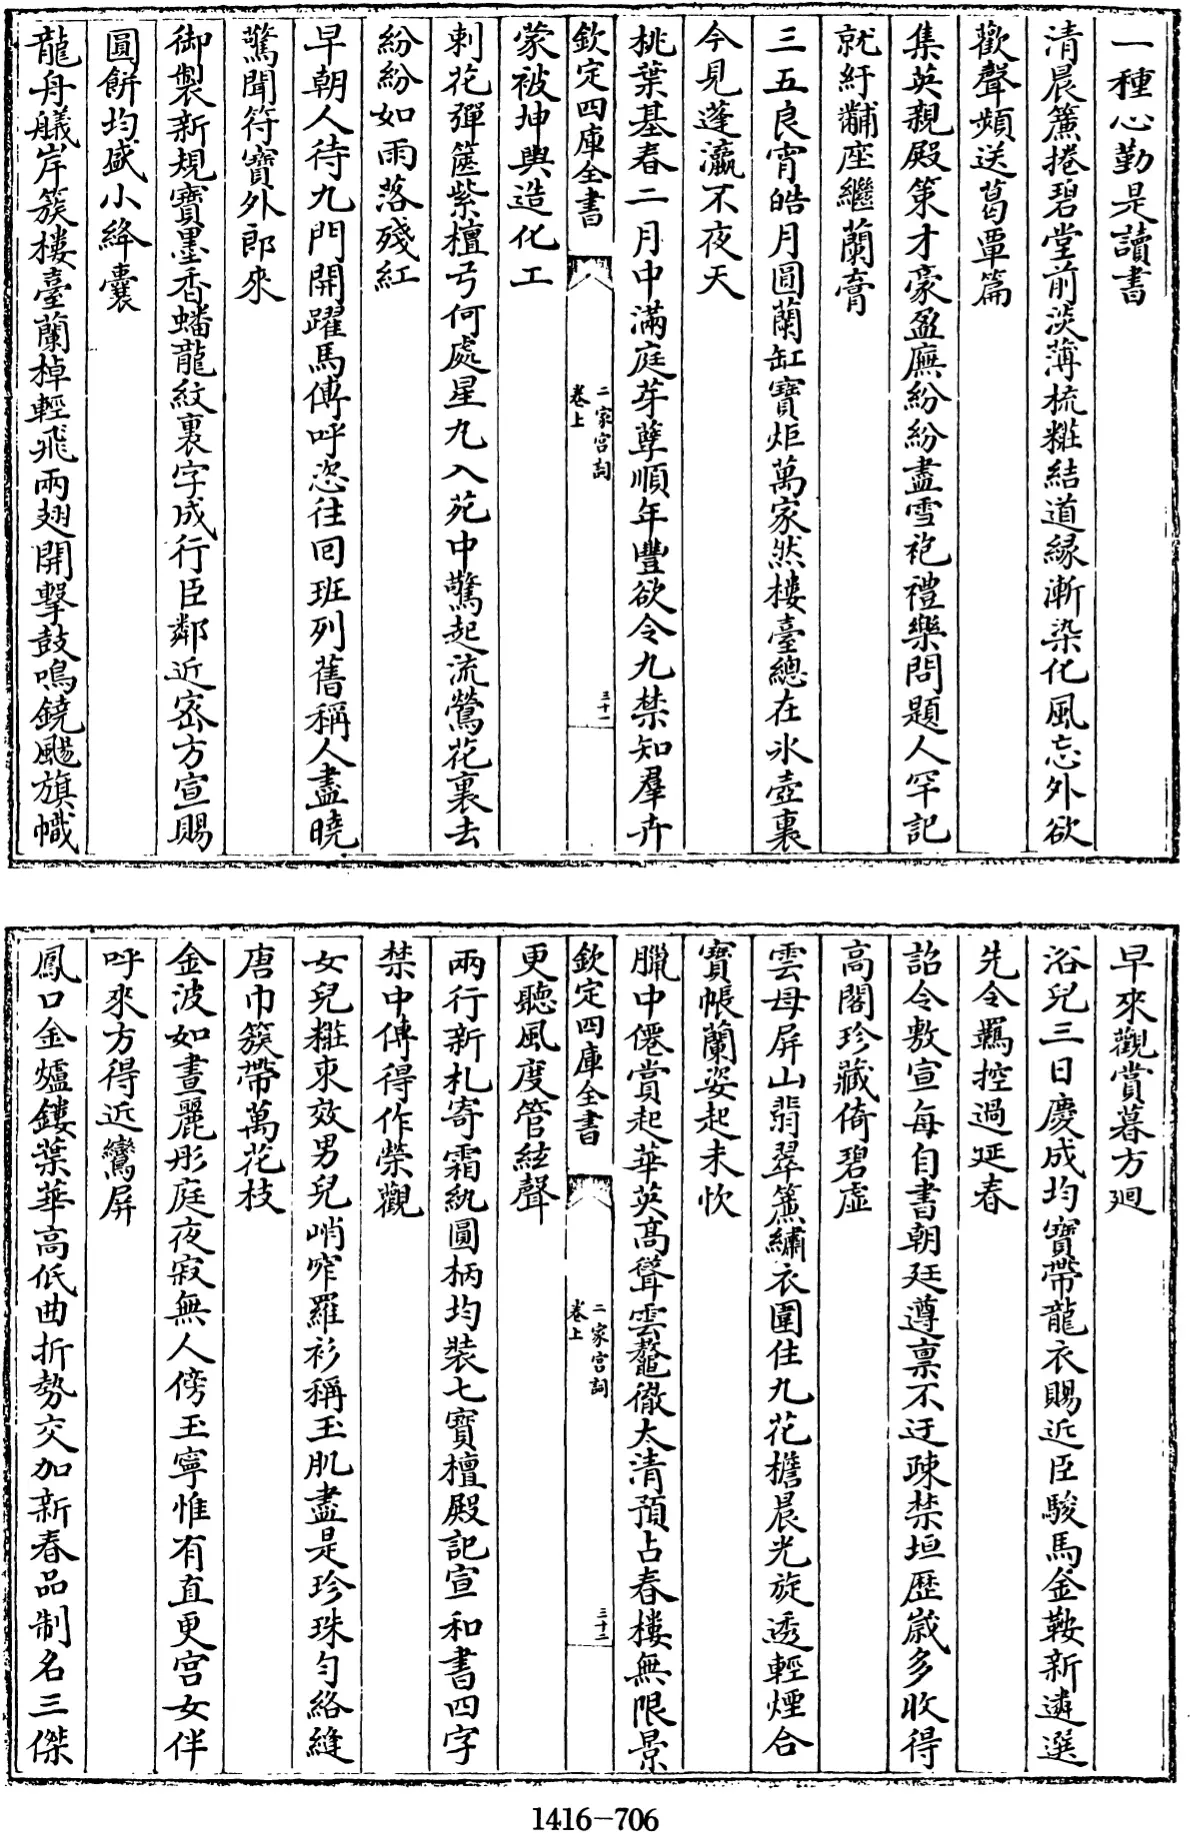 一種心勤是讀書
清晨簾捲碧堂前淡薄梳粧結道縁漸染化風忘外欲
歡聲頻送葛覃篇
集英親殿第才豪盈廡紛紛盡雪袍禮樂問題人罕記
就紆黼座繼蘭膏
三五良宵皓月圓蘭缸寶炬萬家然樓臺總在氷壺裏
今見蓬瀛不夜天
桃葉基春二月中滿庭芽孽順年豐欲令九禁知羣卉
欽定四庫全書 二家宫詞 卷上 三十一
蒙被坤輿造化工
剌花彈篋紫檀弓何處星丸入苑中驚起流鶯花裏去
紛紛如雨落殘紅
早朝人待九門開躍馬傳呼恣往回班列舊稱人盡曉
驚聞符寶外郎來
御製新規寶墨香蟠龍紋裏字成行臣鄰近密方宣賜
圓餅均盛小絳囊
龍舟艤岸簇樓臺蘭棹輕飛兩翅開擊鼓鳴鐃颺旗幟
早來觀賞暮方廻
浴兒三日慶成均寶帶龍衣賜近臣駿馬金鞍新遴選
先令羈控過延春
詔令敷宣每自書朝廷遵禀不迂疎禁垣歴嵗多收得
高閣珍藏倚碧虚
雲母屏山翡翠簾繡衣圍住九花檐晨光旋透輕煙合
寶帳蘭姿起未忺
臘中僊賞起華英髙聳雲鼇徹太清預占春樓無限景
欽定四庫全書 二家宫詞 卷上 三十二
更聽風度管絃聲
兩行新札寄霜紈圓柄均裝七寶檀殿記宣和書四字
禁中傳得作榮觀
女兒粧束效男兒峭窄羅衫稱玉肌盡是珍珠匀絡縫
唐巾簇帶萬花枝
金波如晝麗彤庭夜寂無人傍玉寧惟有直更宫女伴
呼來方得近鸞屏
鳳口金爐鏤葉華高低曲折勢交加新春品制名三傑
1416-706